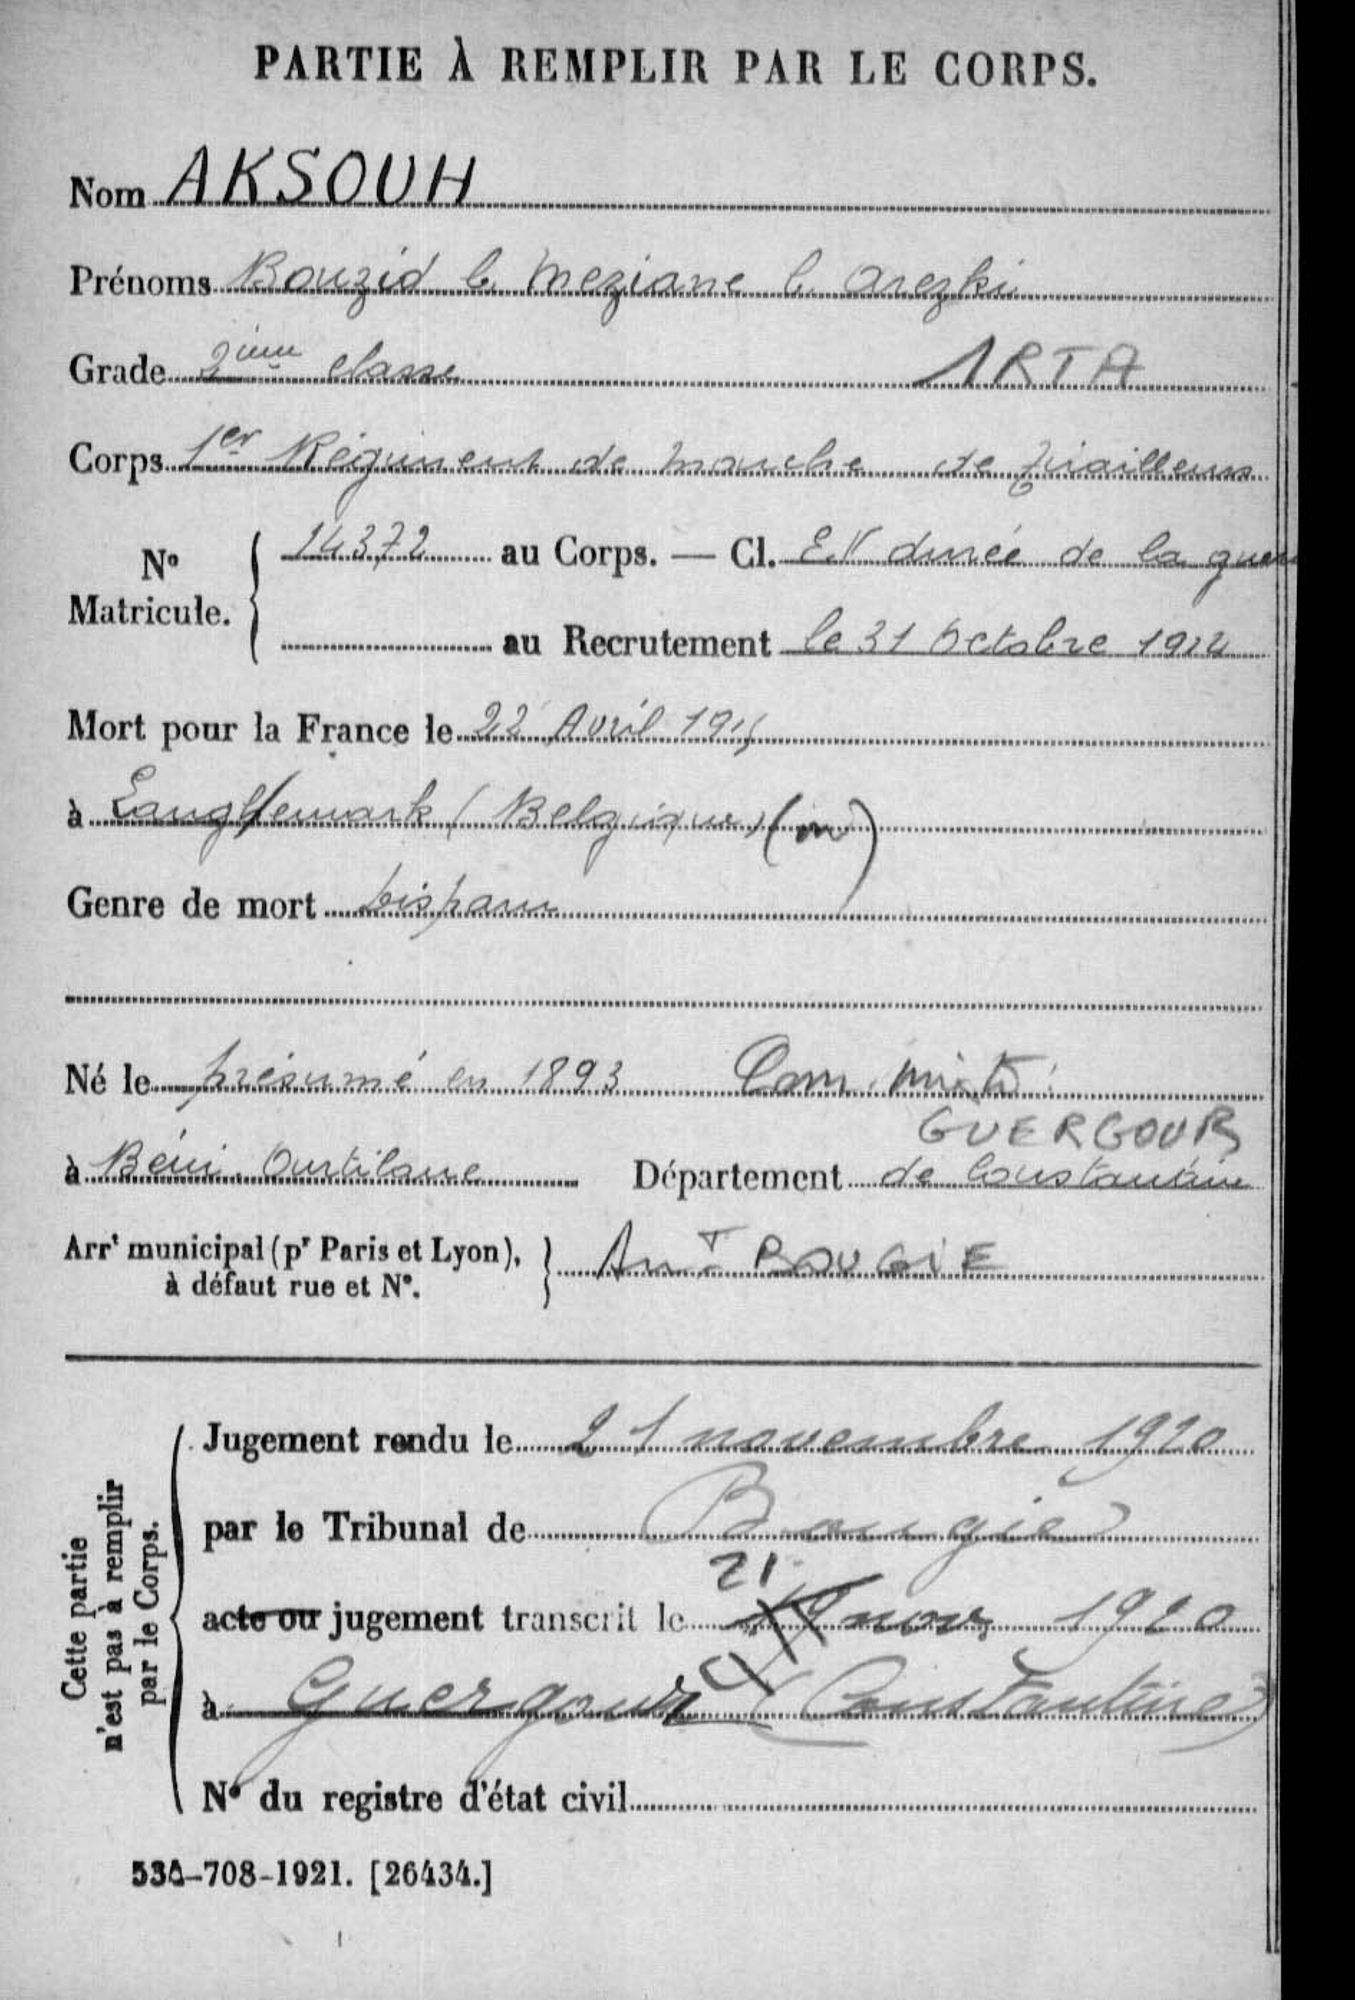 PARTIE À REMPLIR PAR LE CORPS.
Nom AKSOUH
Prénoms Bouzid b. Meziane b. Arezki
Grade 2ième classe 1RTA
Corps 1er Régiment de marche de Tirailleurs
No Matricule. 14372 au Corps. — Cl. E.V durée de la guer
au Recrutement le 31 Octobre 1914
Mort pour la France le 22 Avril 1915
à Langhemark (Belgique)
Genre de mort Disparu
Né le présumé en 1893 Com. mixte
GUERGOUR
à Béni-Ourtilane Département de Constantine
Arrt municipal (pr Paris et Lyon), à défaut rue et No. Arrt BOUGIE
Cette partie n'est pas à remplir par le Corps.
Jugement rendu le 21 novembre 1920
par le Tribunal de Bougie
21
acte ou jugement transcrit le nov 1920
à Guergour (Constantine)
No du registre d'état civil
534-708-1921. [26434.]